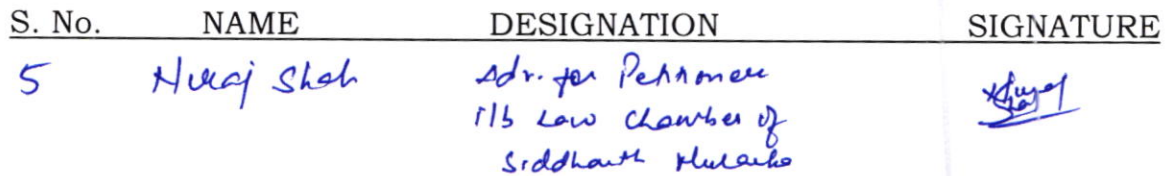 S. No. NAME DESIGNATION SIGNATURE
5 Niraj Shah Adv. for Petitioner
i/b Law Chamber of
Siddharth